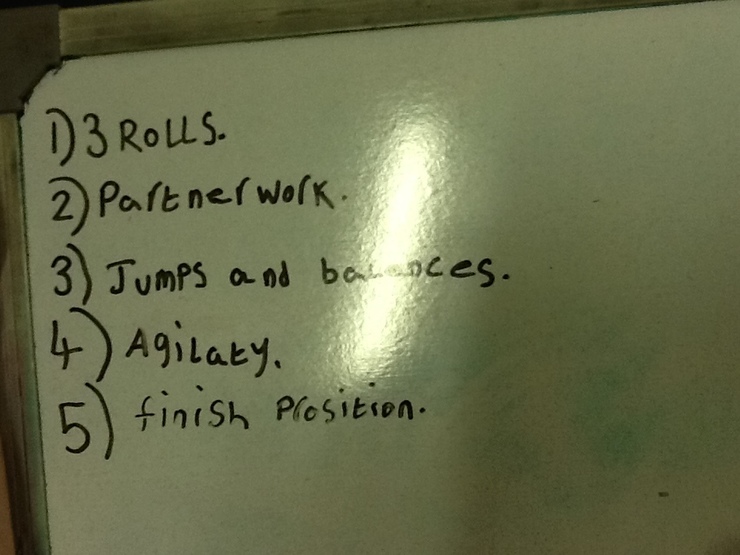 1) 3 ROLLS.
2) Partner work.
3) Jumps and balances.
4) Agilaty.
5) finish Prosition.